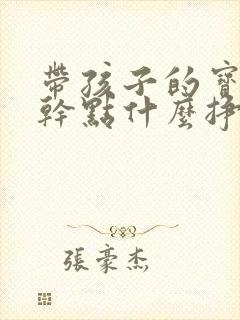 帶孩子的寶
幹點什麼掙
張豪杰